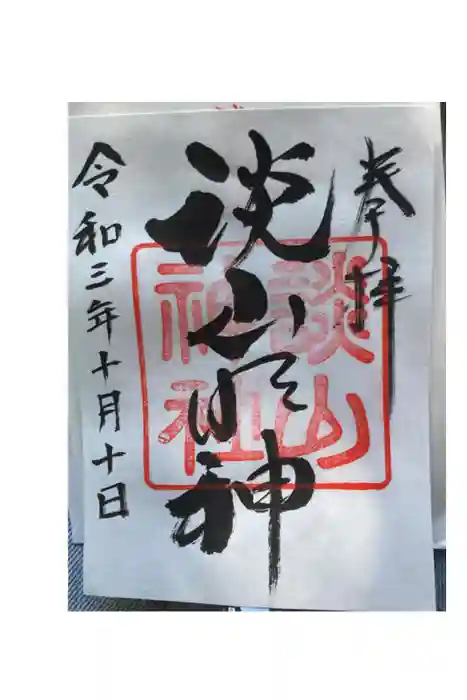 奉拝
談山明神
令和三年十月十日
談山
神社